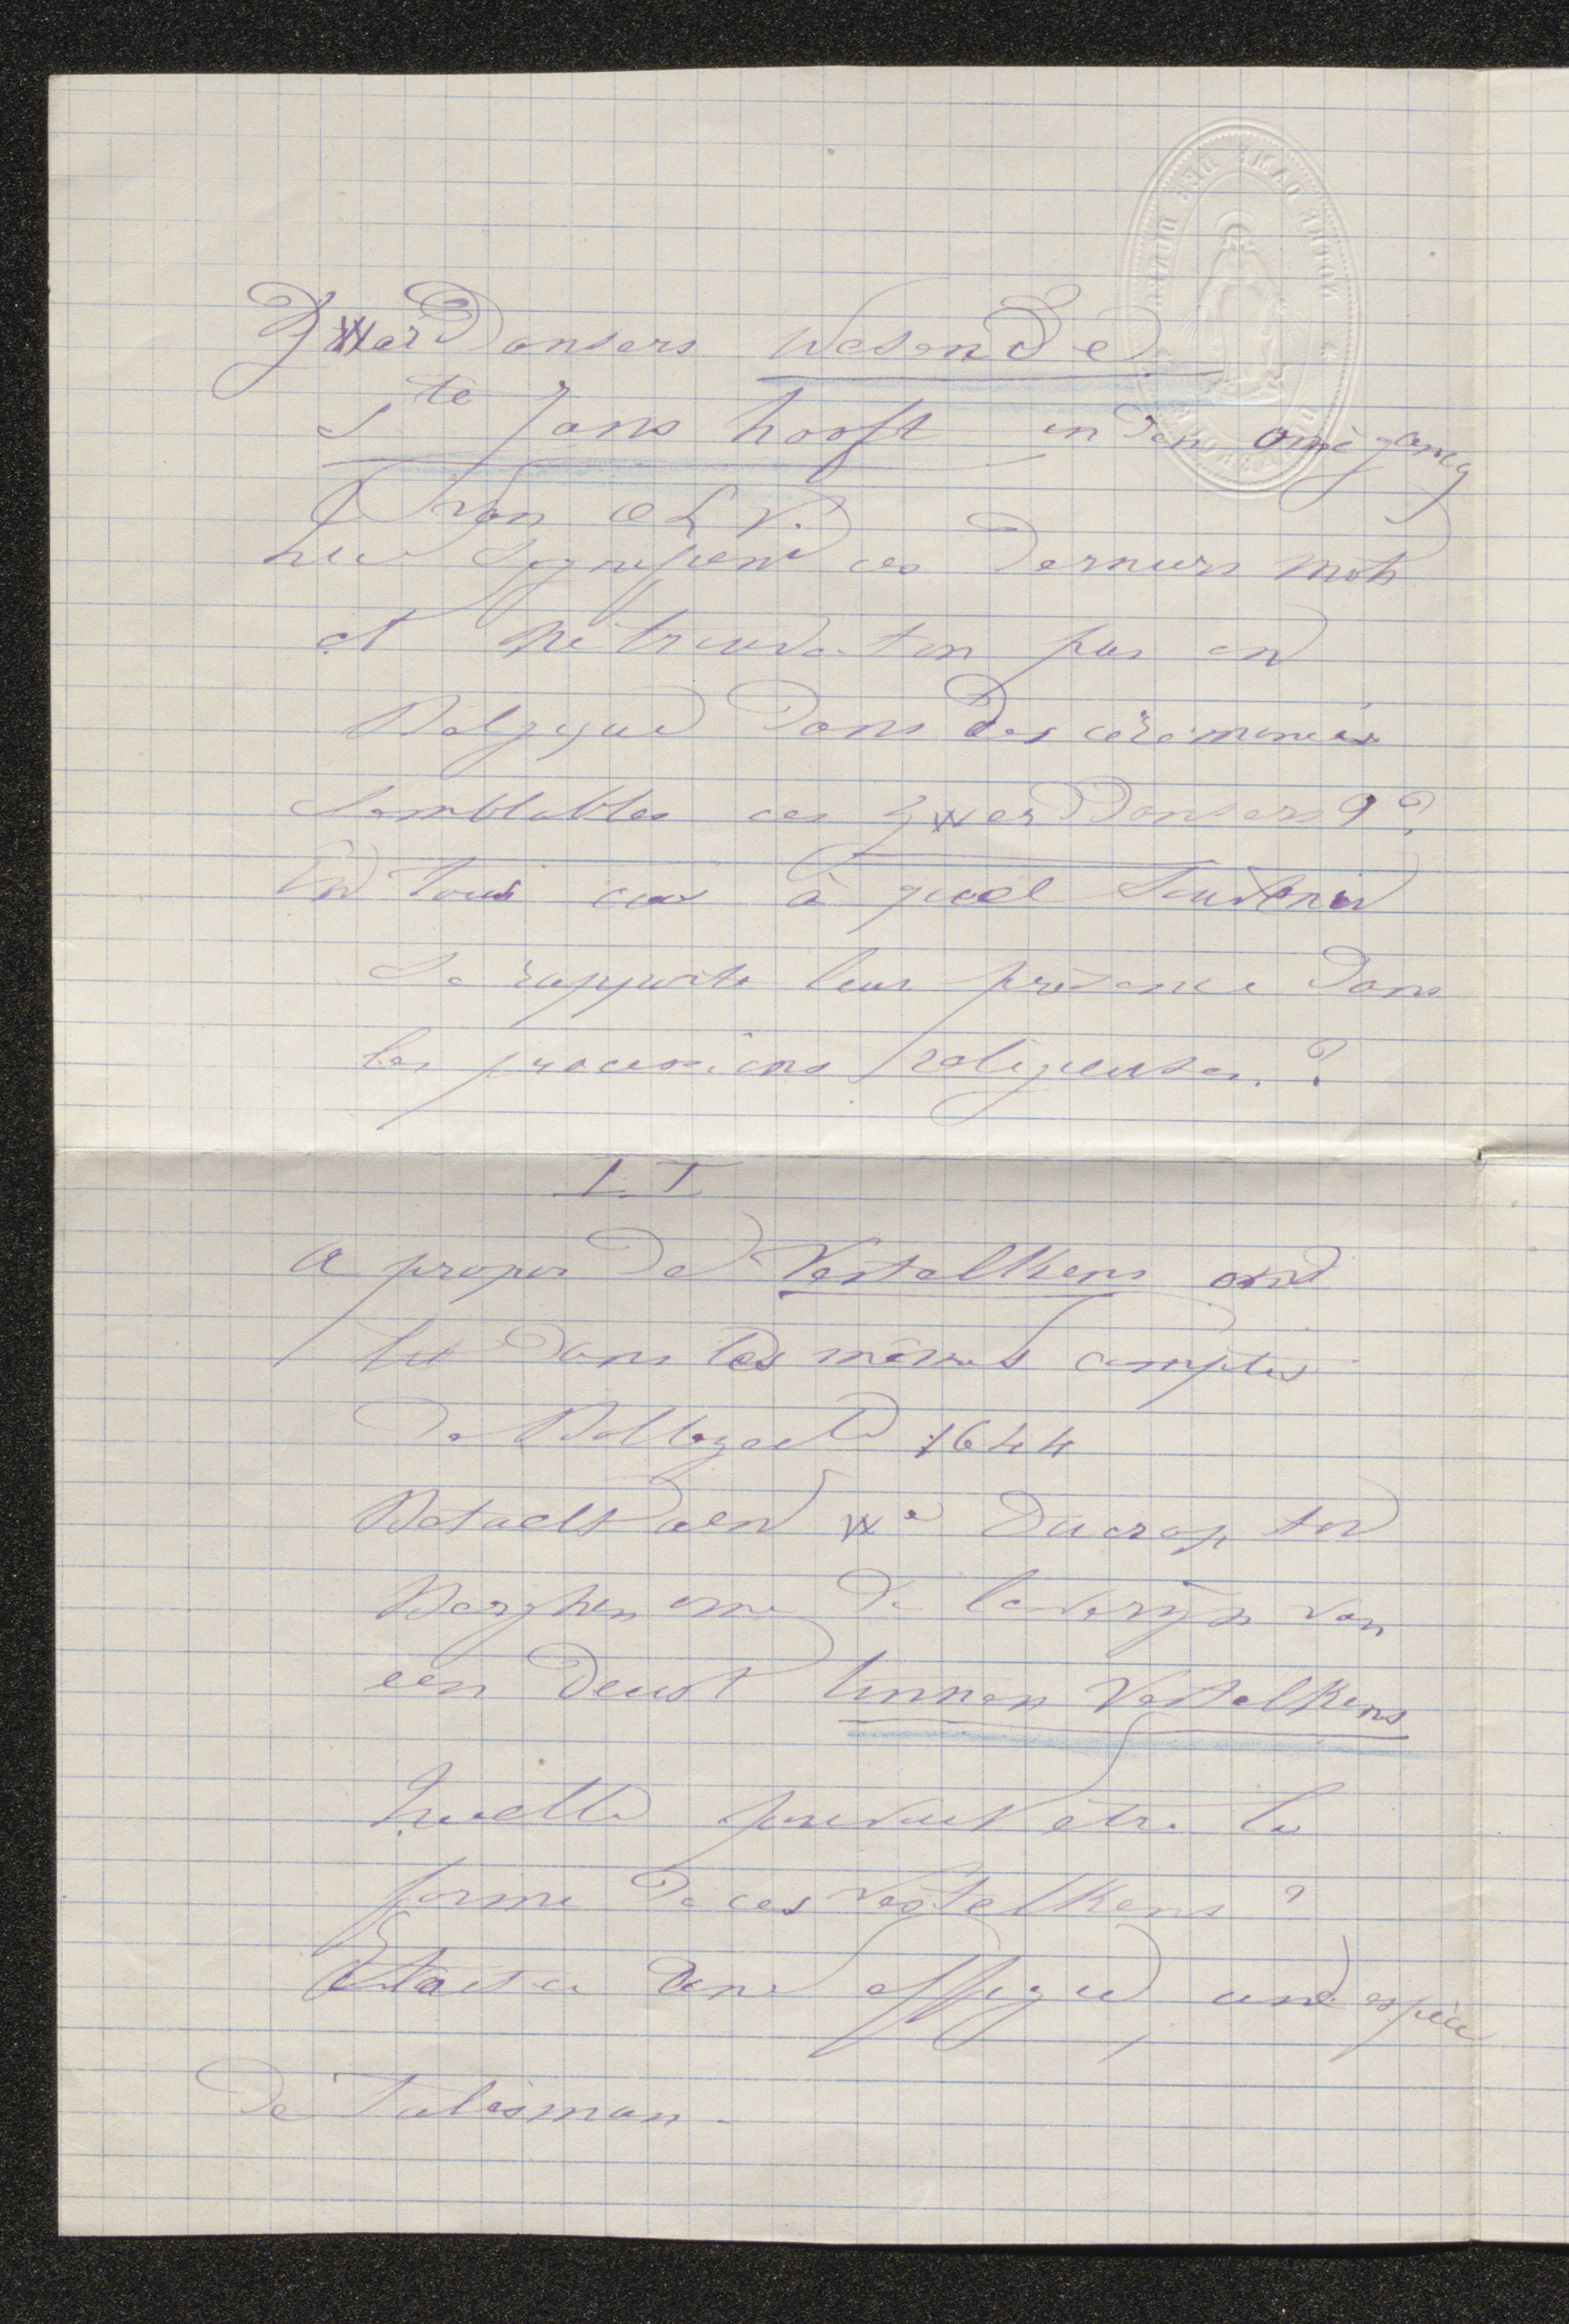 ZwerDansers wesende
Ste Jans hooft in den omegancg
van OLV.
Que signifient ces derniers mots
et ne trouve-t-on pas en
Belgique dans des cérémonies
semblables ces ZwerDansers ?
En tous cas à quel souvenir
se rapporte leur présence dans
les processions religieuses. ?
II
A propos de Vestelkens on
lit dans les mêmes comptes
de Bollezeele 1644
Betaelt aen we Ducrop tot
Berghen over de leverijn van
een deust linnen Vestelkens
Quelle pouvait être la
forme de ces Vestelkens ?
Etait-ce une effigie, une espèce
de Talisman.